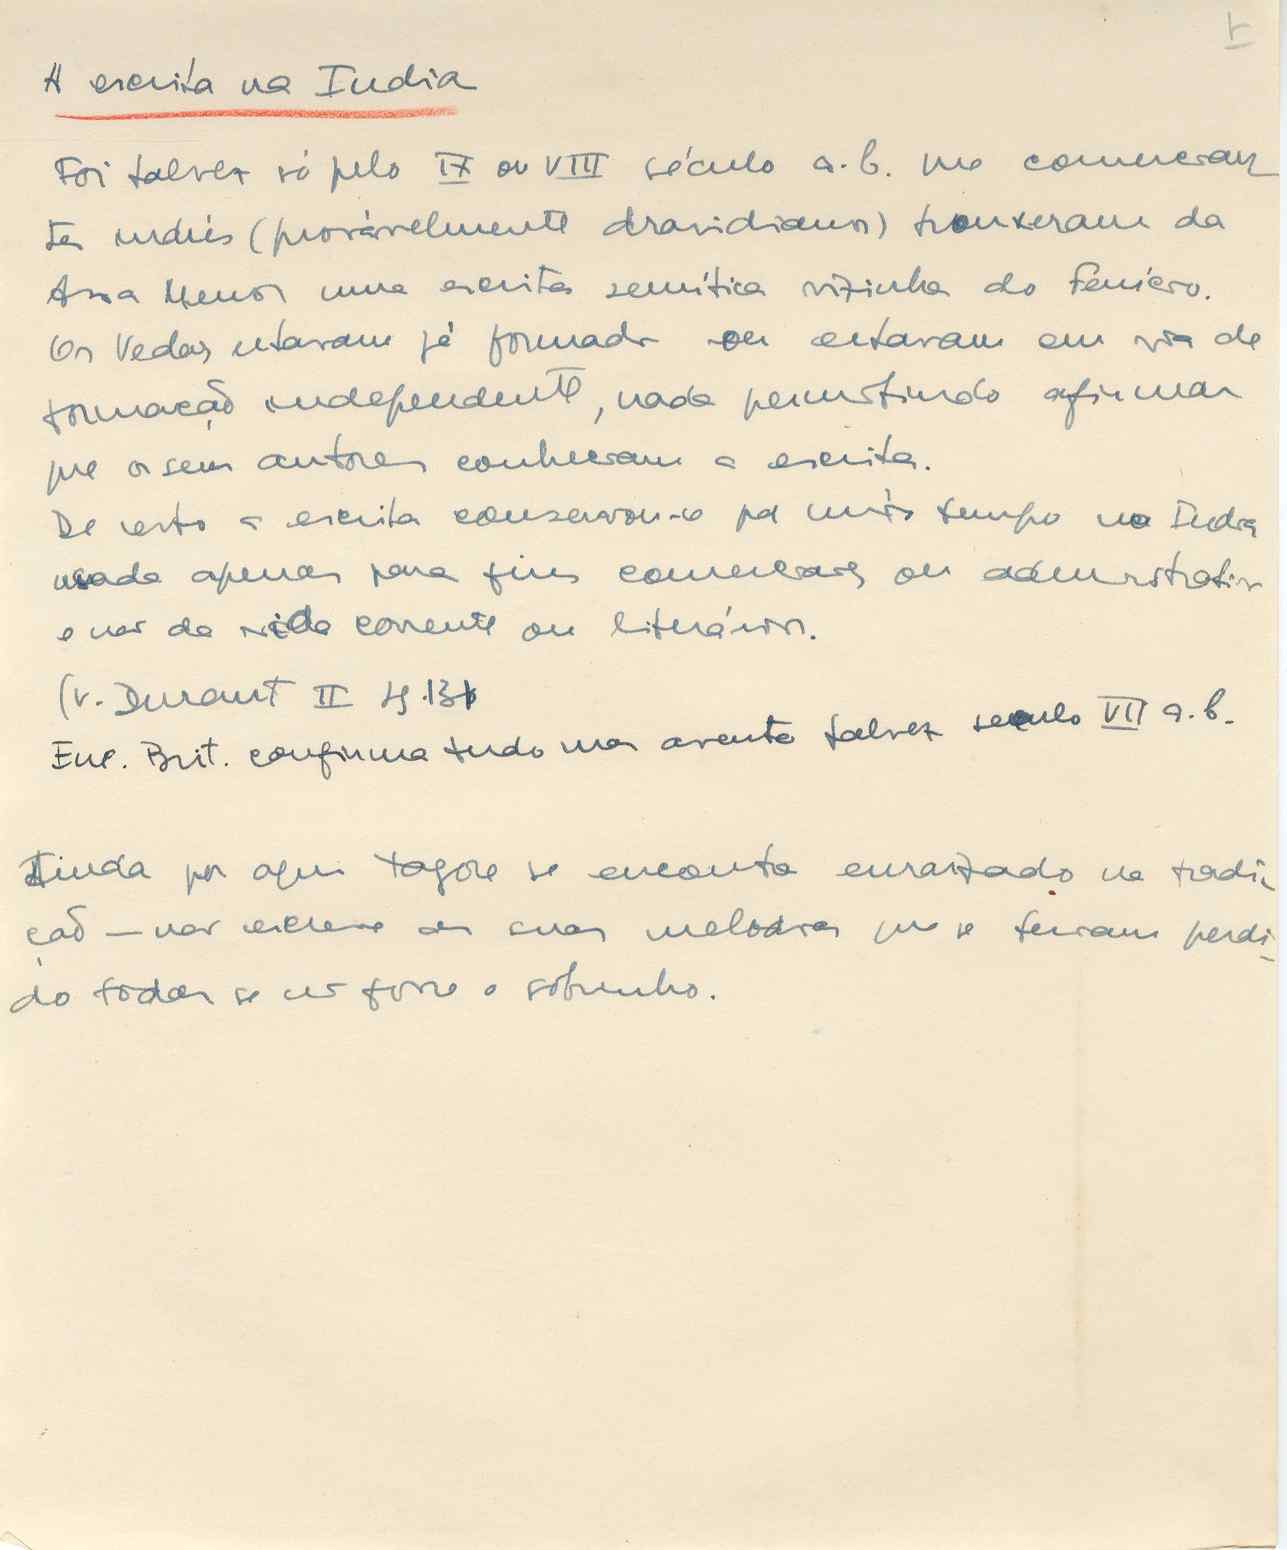 A escrita na India
Foi talvez só pelo IX ou VIII século a.C. que comercian
tes indús (provàvelmente dravidianos) trouxeram da
Asia Menor uma escrita semítica vizinha do fenício.
Os Vedas estavam já formados ou estavam em via de
formação independente, nada permitindo afirmar
que os seus autores conheceram a escrita.
De certo a escrita conservou-se por muito tempo na India
usada apenas para fins comerciais ou administrativos
e não da vida corrente ou literários.
(v. Durant II pg. 131
Enc. Brit. confirma tudo mas aventa talvez século VII a.C.
Ainda por aqui Tagore se encontra enraizado na tradi-
ção — não escreve as suas melodias que se teriam perdi-
do todas se não fosse o sobrinho.